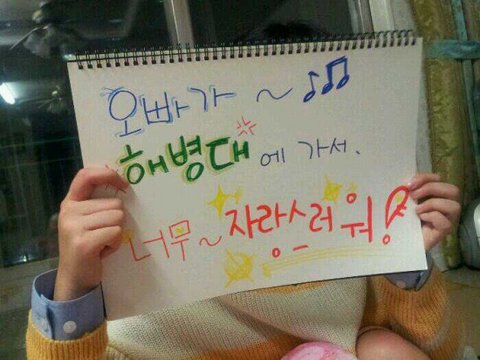 오빠가 ~ ♪♫
해병대에 가서.
너무~ 자랑스러워!